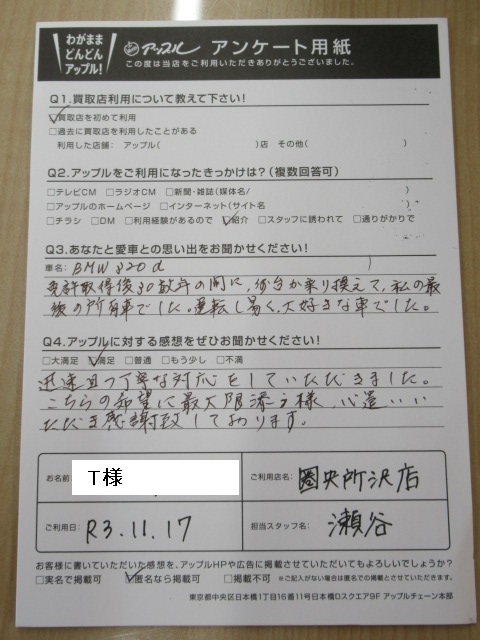 わがまま
どんどん
アップル!
アップル アンケート用紙
この度は当店をご利用いただきありがとうございました。
Q1.買取店利用について教えて下さい!
☑買取店を初めて利用
□過去に買取店を利用したことがある
利用した店舗: アップル( )店 その他( )
Q2.アップルをご利用になったきっかけは?(複数回答可)
□テレビCM □ラジオCM □新聞・雑誌(媒体名/ )
□アップルのホームページ □インターネット(サイト名 )
□チラシ □DM □利用経験があるので ☑紹介 □スタッフに誘われて □通りがかりで
Q3.あなたと愛車との思い出をお聞かせください!
車名: BMW 320d )
免許取得後30数年の間に、何台か乗り換えて、私の最
後の所有車でした。運転し易く、大好きな車でした。
Q4.アップルに対する感想をぜひお聞かせください!
□大満足 ☑満足 □普通 □もう少し □不満
迅速且つ丁寧な対応をしていただきました。
こちらの希望に最大限添う様、心遣いい
ただき感謝致しております。
お名前 T様
ご利用店名: 圏央所沢店
ご利用日: R3.11.17
担当スタッフ名: 瀬谷
お客様に書いていただいた感想を、アップルHPや広告に掲載させていただいてもよろしいでしょうか?
□実名で掲載可 ☑匿名なら掲載可 □掲載不可 ※ご記入がない場合は匿名での掲載とさせていただきます。
東京都中央区日本橋1丁目16番11号日本橋Dスクエア9F アップルチェーン本部